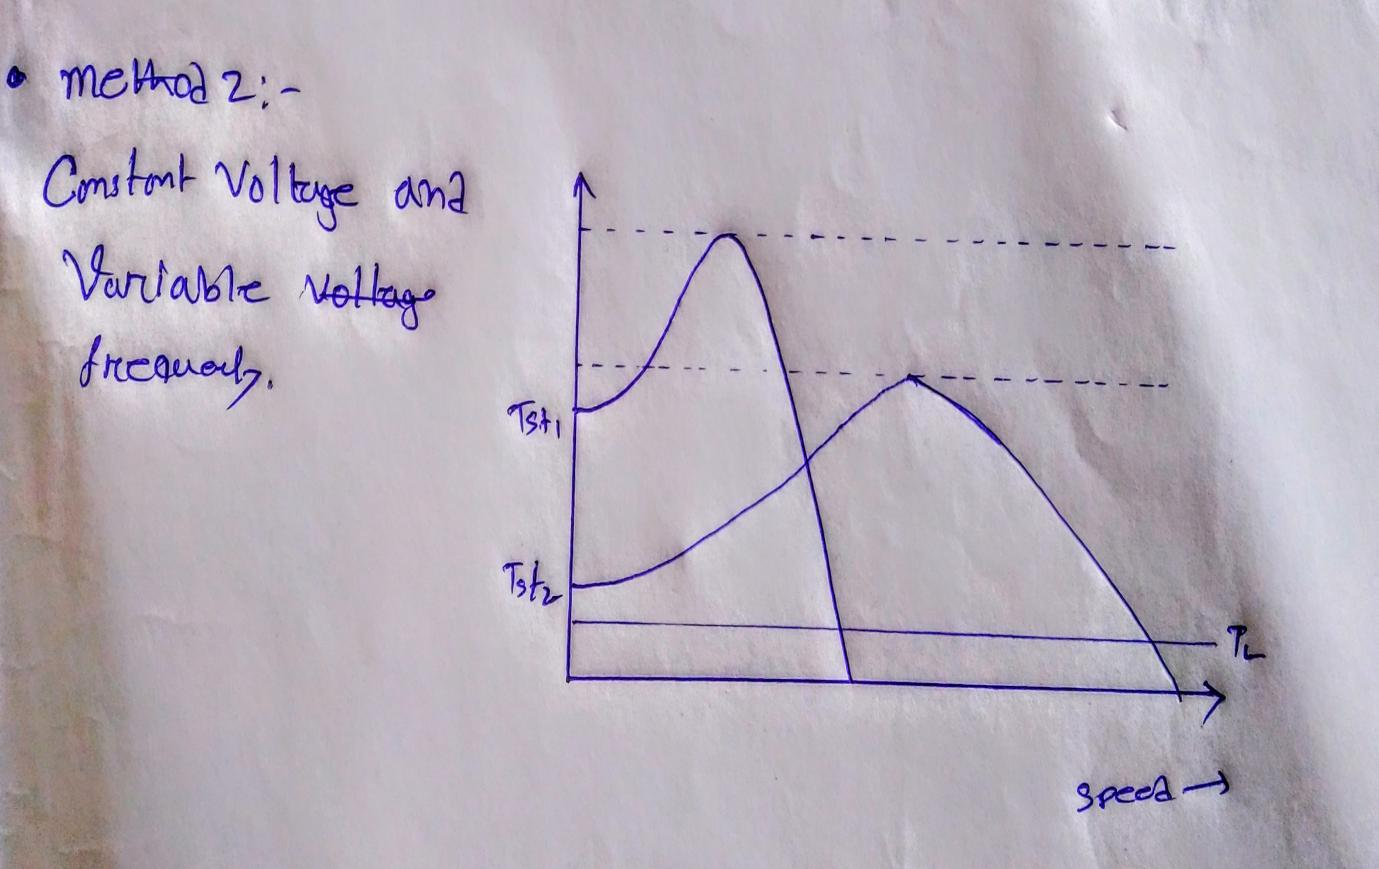 • Method 2:-
Constant Voltage and
Variable Voltage
frequency.
Tst1
Tst2
TL
Speed →